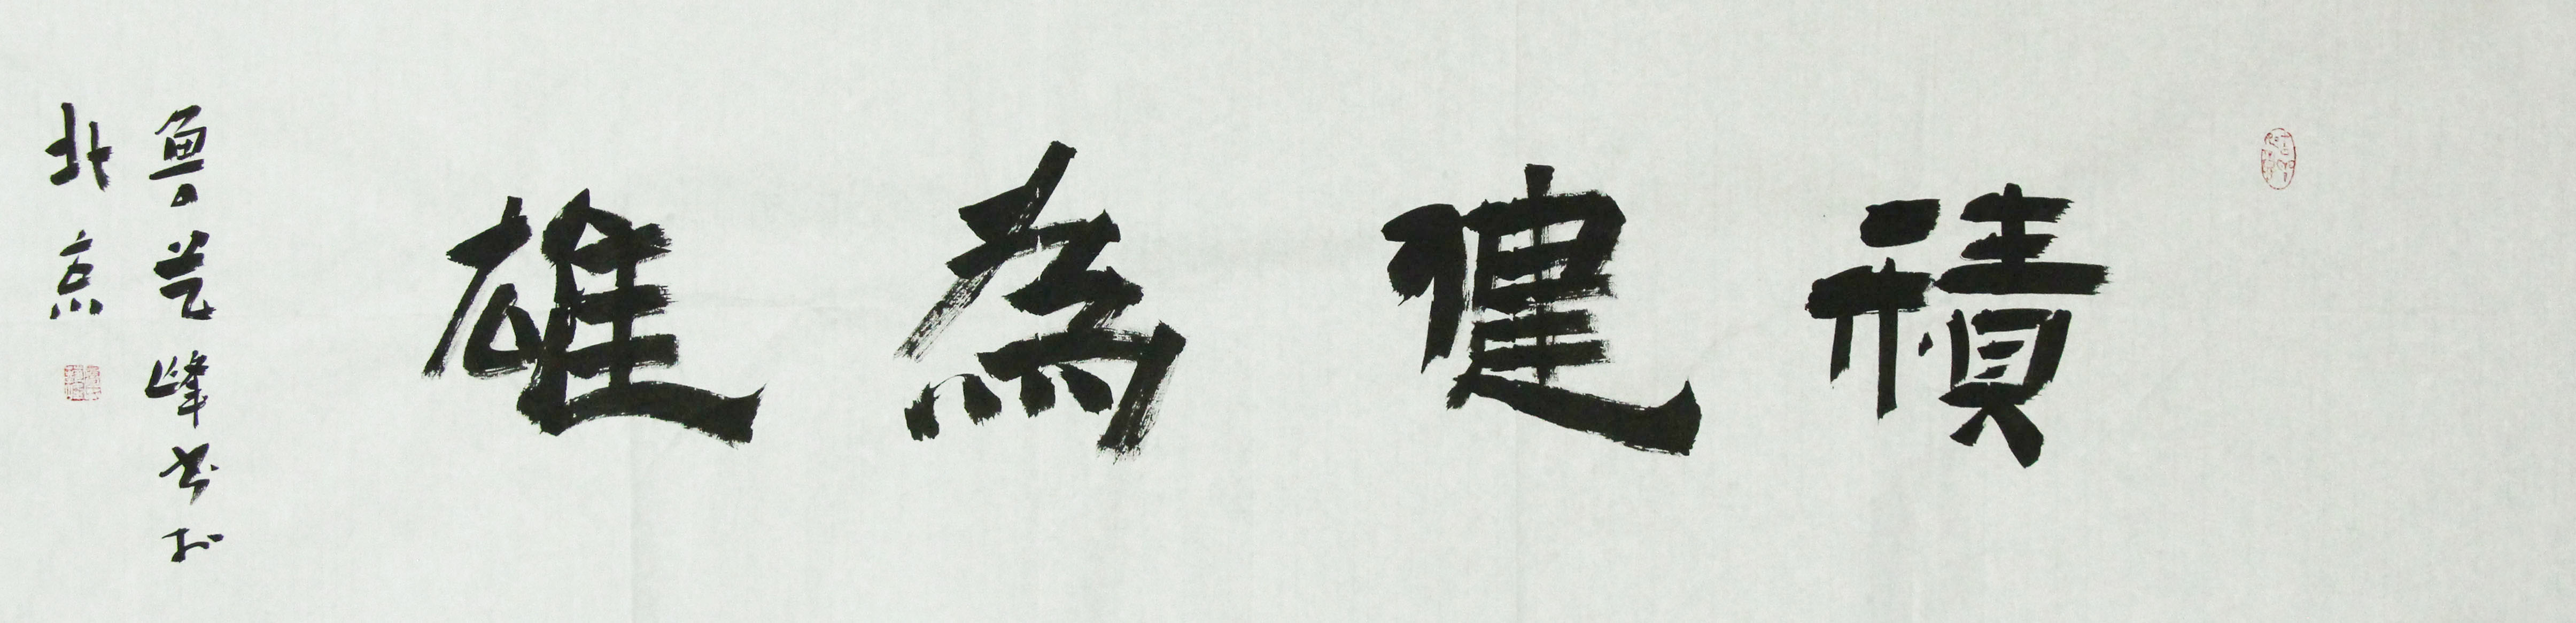 積健為雄
魯藝峰書於
北京